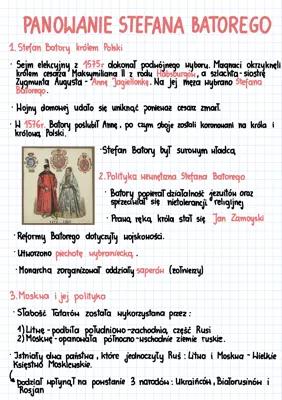 PANOWANIE STEFANA BATOREGO
1. Stefan Batory królem Polski
· Sejm elekcyjny z 1575r dokonał podwójnego wyboru. Magnaci okrzyknęli
królem cesarza Maksymiliana II z rodu Habsburgów, a szlachta - siostrę
Zygmunta Augusta - Annę Jagiellonkę. Na jej męża wybrano Stefana
Batorego.
· Wojny domowej udało się uniknąć ponieważ cesarz zmarł.
· W 1576r. Batory poślubił Annę, po czym oboje zostali koronowani na króla i
królową Polski.
· Stefan Batory był surowym władcą
2. Polityka wewnętrzna Stefana Batorego
· Batory popierał działalność jezuitów oraz
sprzeciwiał się nietolerancji religijnej
· Prawą ręką króla stał się Jan Zamoyski
· Reformy Batorego dotyczyły wojskowości.
· Utworzono piechotę wybraniecką.
· Monarcha zorganizował oddziały saperów (żołnierzy)
3. Moskwa i jej polityka
· Słabość Tatarów została wykorzystana przez:
1) Litwę - podbiła południowo-zachodnią część Rusi
2) Moskwę - opanowała północno-wschodnie ziemie ruskie.
· Istniały dwa państwa, które jednoczyły Ruś: Litwa i Moskwa - Wielkie
Księstwo Moskiewskie.
Podział wpłynął na powstanie 3 narodów: Ukraińców, Białorusinów i
Rosjan